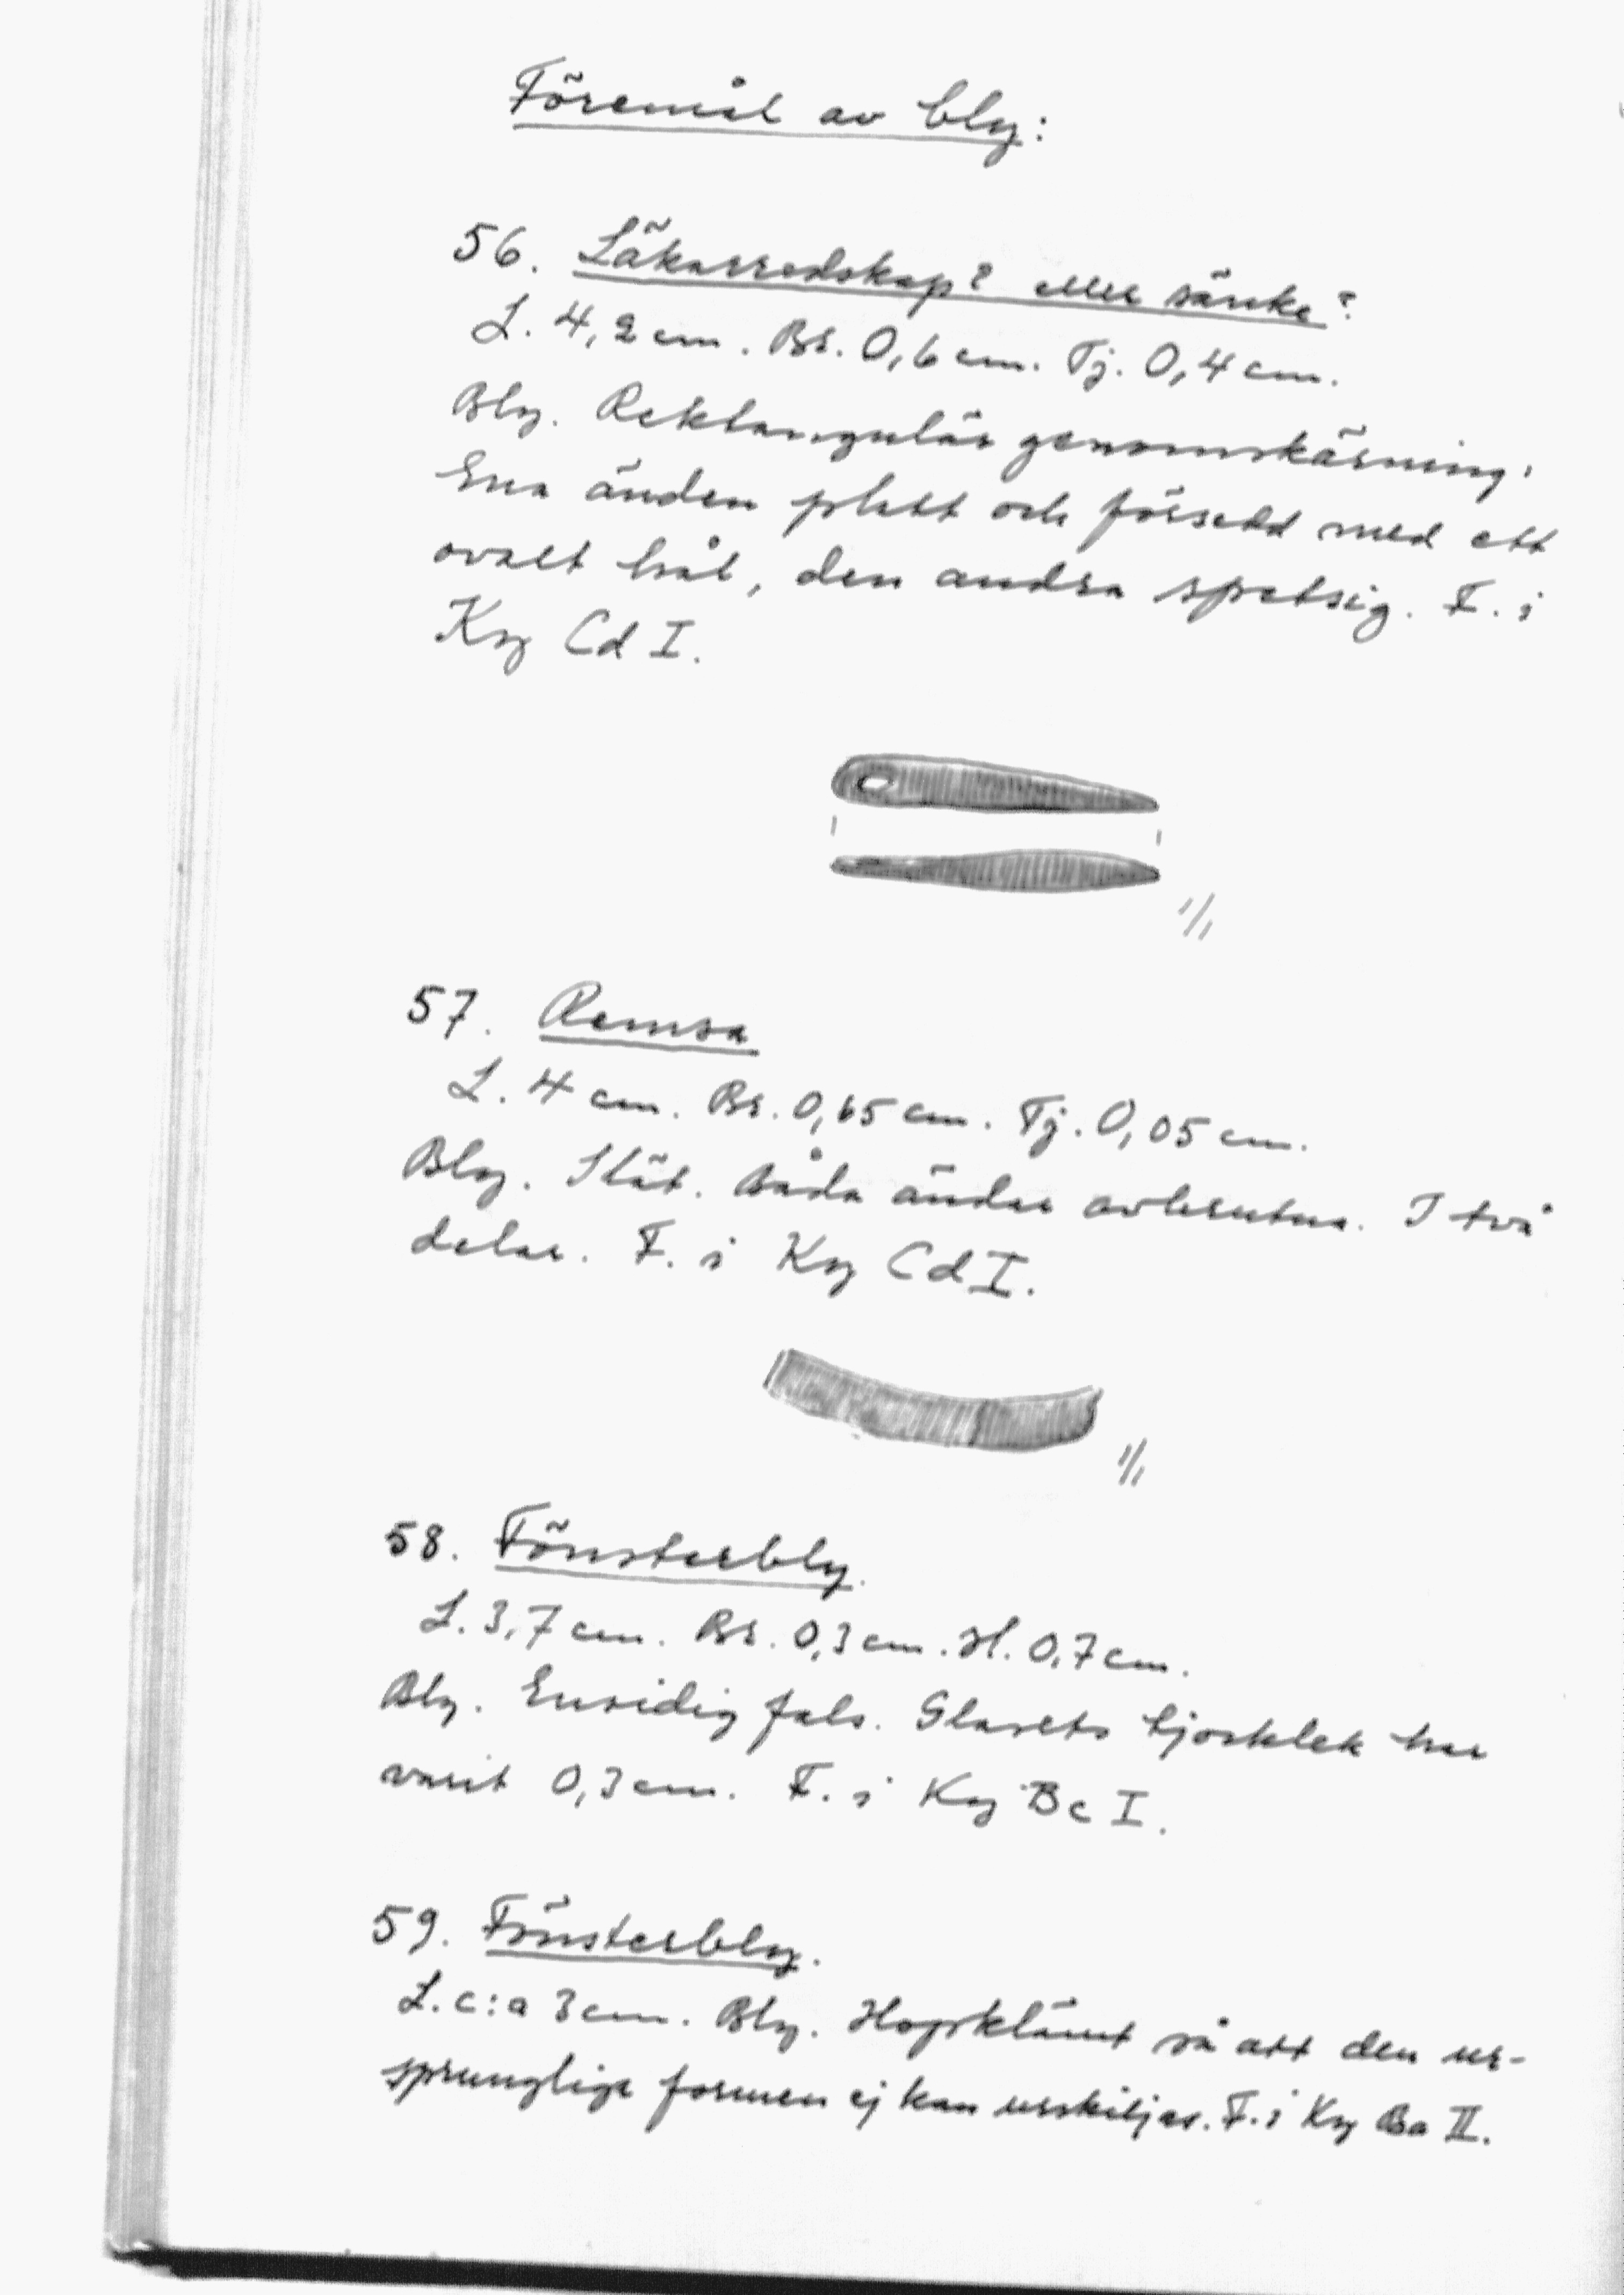 Föremål av bly:
56. Läkarredskap? eller sänke?
L. 4,2 cm. Br. 0,6 cm. Tj. 0,4 cm.
Bly. Rektangulär genomskärning.
Ena änden platt och försedd med ett
ovalt hål, den andra spetsig. F. i
Ky Cd I.
1/1
57. Remsa
L. 4 cm. Br. 0,65 cm. Tj. 0,05 cm.
Bly. Slät. Båda ändar avbrutna. I två
delar. F. i Ky Cd I.
1/1
58. Fönsterbly.
L. 3,7 cm. Br. 0,3 cm. H. 0,7 cm.
Bly. Ensidig fals. Glasets tjocklek har
varit 0,3 cm. F. i Ky Bc I.
59. Fönsterbly.
L. c:a 3 cm. Bly. Hopklämt så att den ur-
sprungliga formen ej kan urskiljas. F. i Ky Ba II.